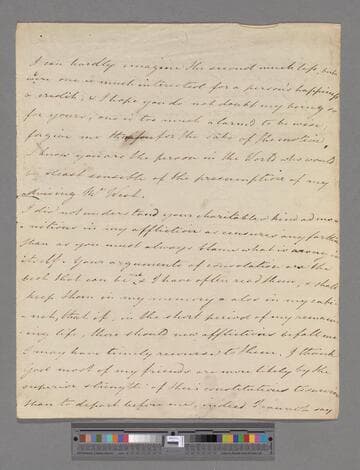 I can hardly imagine the second much less, but
were one is much interested for a person's happiness
& credit, & I hope you do not doubt my being so
for yours, one is too much alarmed to be wise
forgive me therefore for the sake of the motive,
I know you are the person in the World who would
be least sensible of the presumption of my
advising Mr West.
I did not understand your charitable & kind admo-
nitions in my affliction as censures any farther
than as you must always blame what is wrong in
itself. Your arguments of consolation are the
best that can be & I have often read them, & shall
keep them in my memory & also in my cabi
-net, that if, in the short period of my remain
-ing life, there should new afflictions befall me
I may have timely recourse to them. I thank
God most of my friends are more likely by the
superior strength of their constitutions to survive
than to depart before me, indeed I cannot say